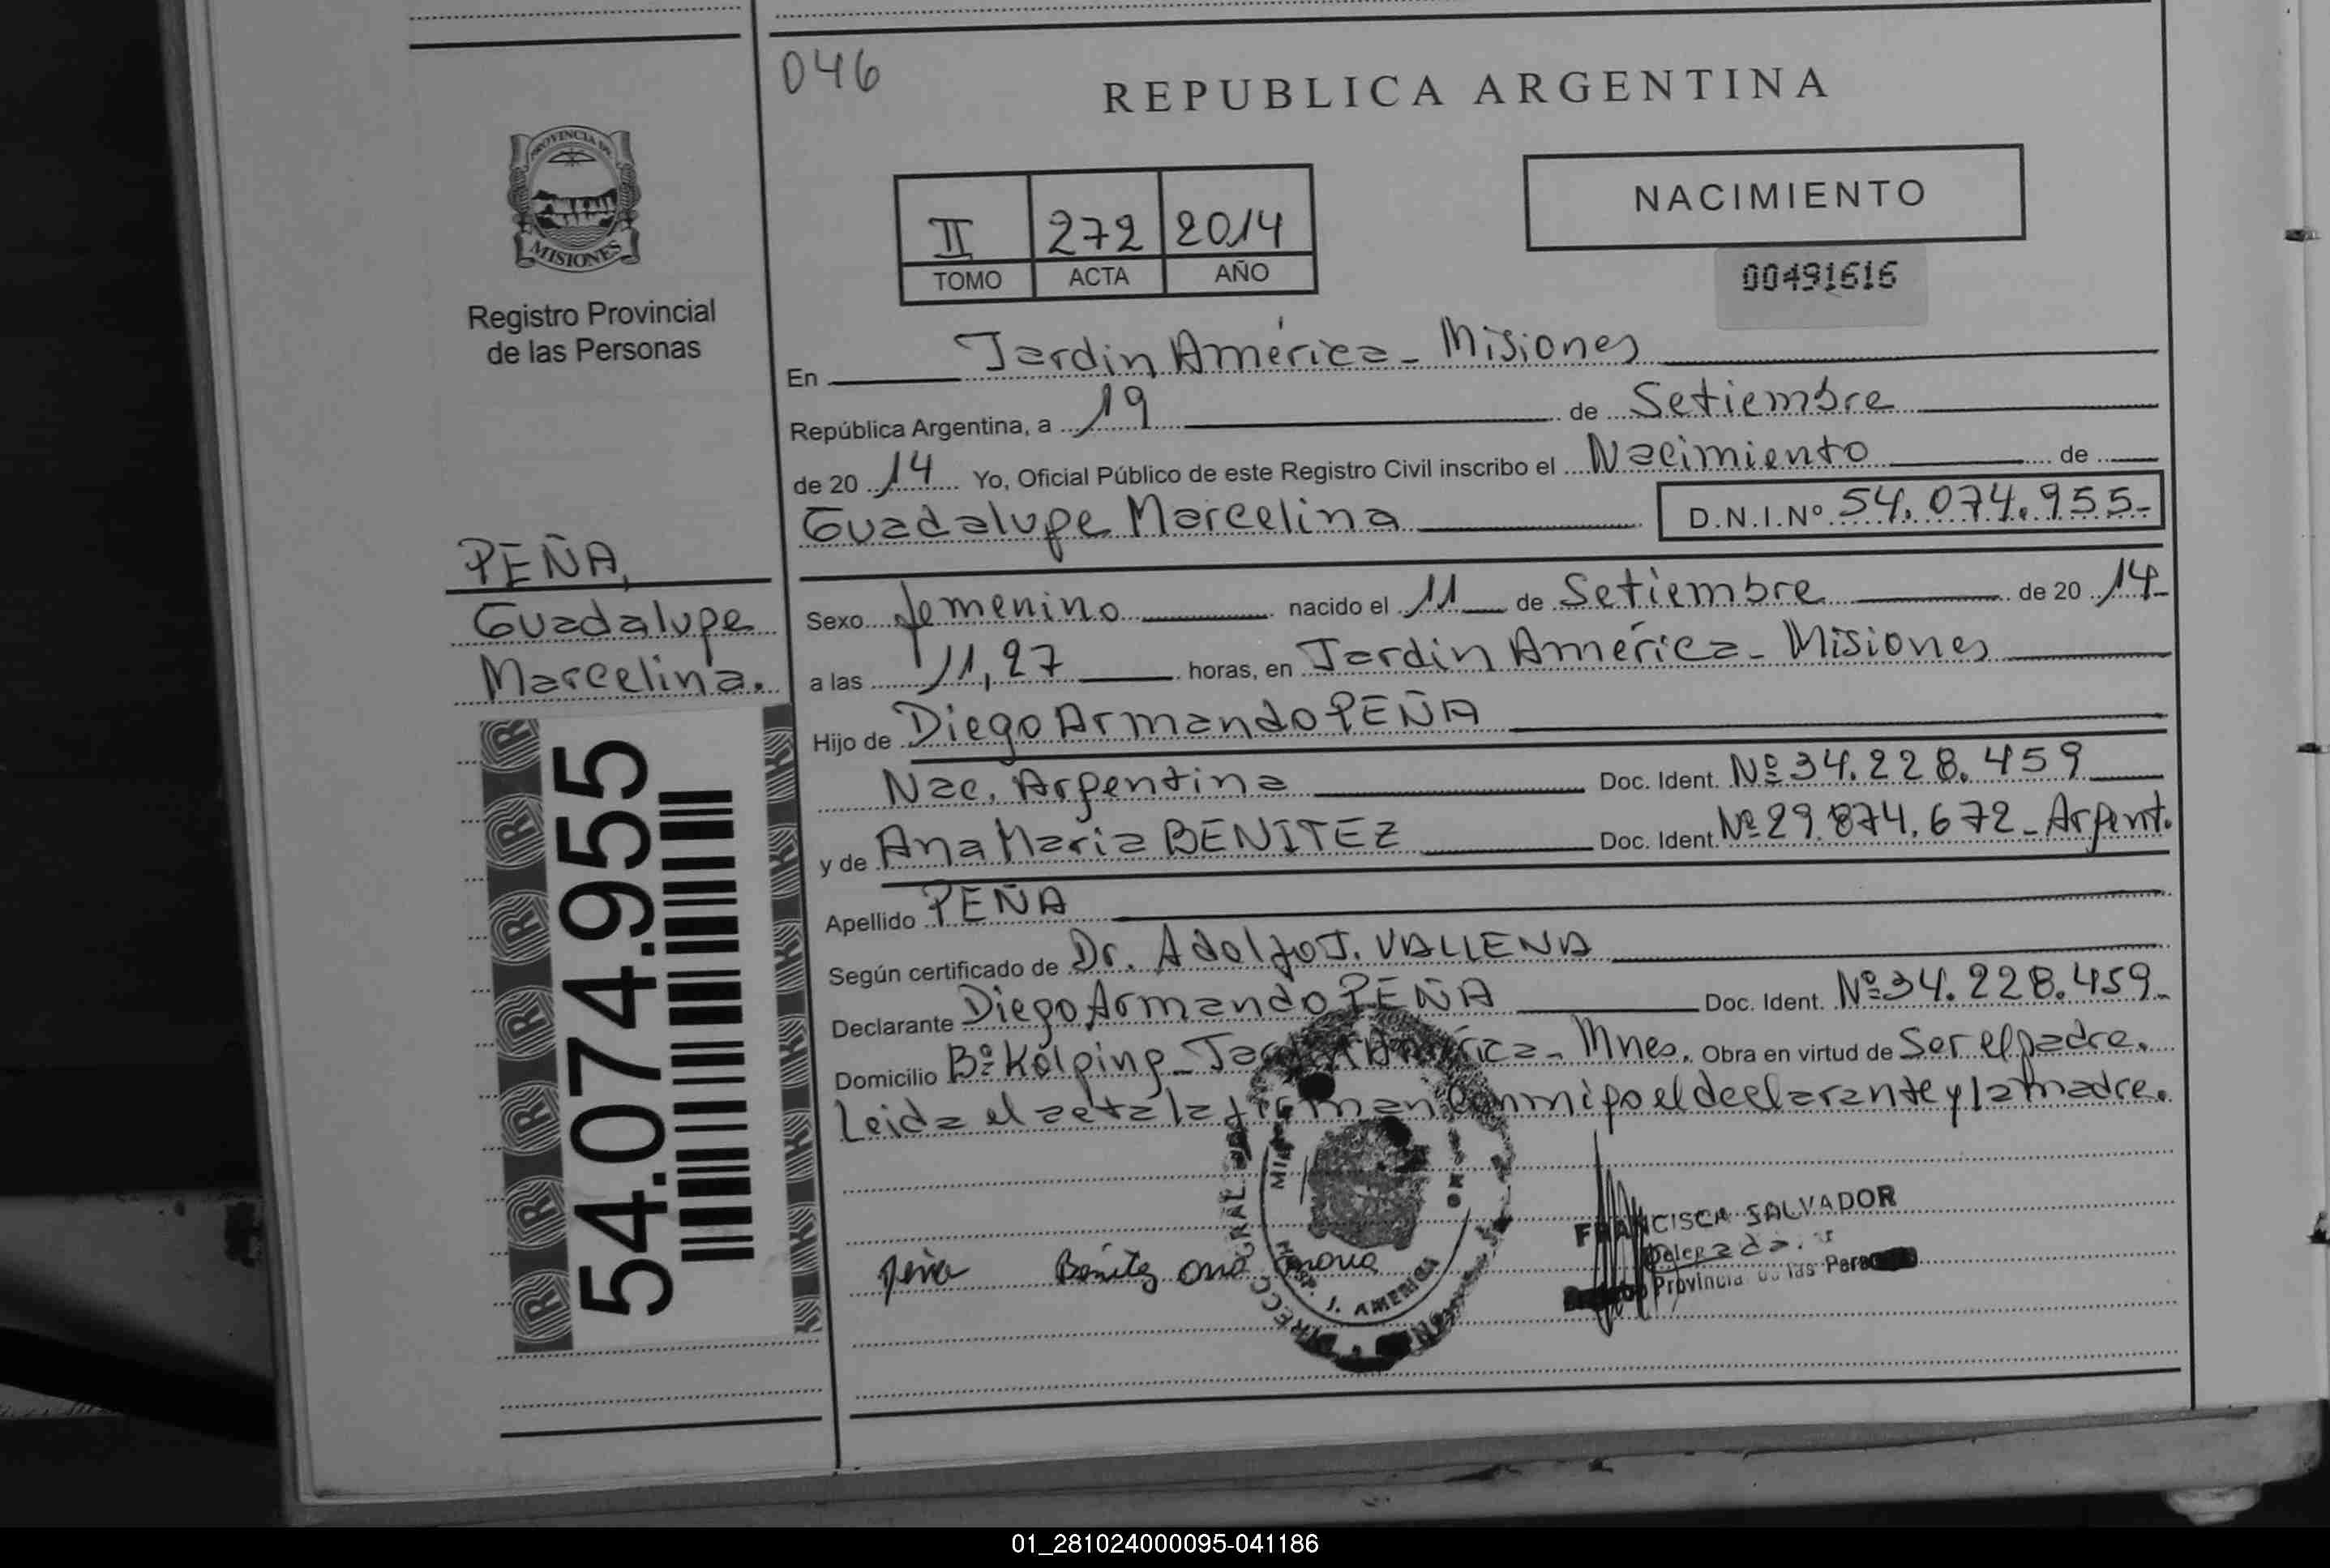 046
REPUBLICA ARGENTINA
PROVINCIA DE
MISIONES
Registro Provincial
de las Personas
II 272 2014
TOMO ACTA AÑO
NACIMIENTO
00491616
En Jardin América - Misiones
República Argentina, a 19 de Setiembre
de 20 14 Yo, Oficial Público de este Registro Civil inscribo el Nacimiento de
Guadalupe Marcelina D.N.I.Nº 54.074.955-
PEÑA,
Guadalupe
Marcelina.
Sexo femenino nacido el 11 de Setiembre de 20 14-
a las 11,27 horas, en Jardin América - Misiones
Hijo de Diego Armando PEÑA
Nac. Argentina Doc. Ident. Nº 34.228.459
y de Ana Maria BENITEZ Doc. Ident. Nº 29.874.672 - Argent.
Apellido PEÑA
Según certificado de Dr. Adolfo J. VALLENA
Declarante Diego Armando PEÑA Doc. Ident. Nº 34.228.459-
Domicilio Bº Kolping - Jardin América - Mnes. Obra en virtud de Ser el padre.
Leida el acta la firman conmigo el declarante y la madre.
54.074.955
FRANCISCA SALVADOR
Delegada
Provincial de las Personas
Peña Benitez Ana Maria
J. AMERICA
01_281024000095-041186